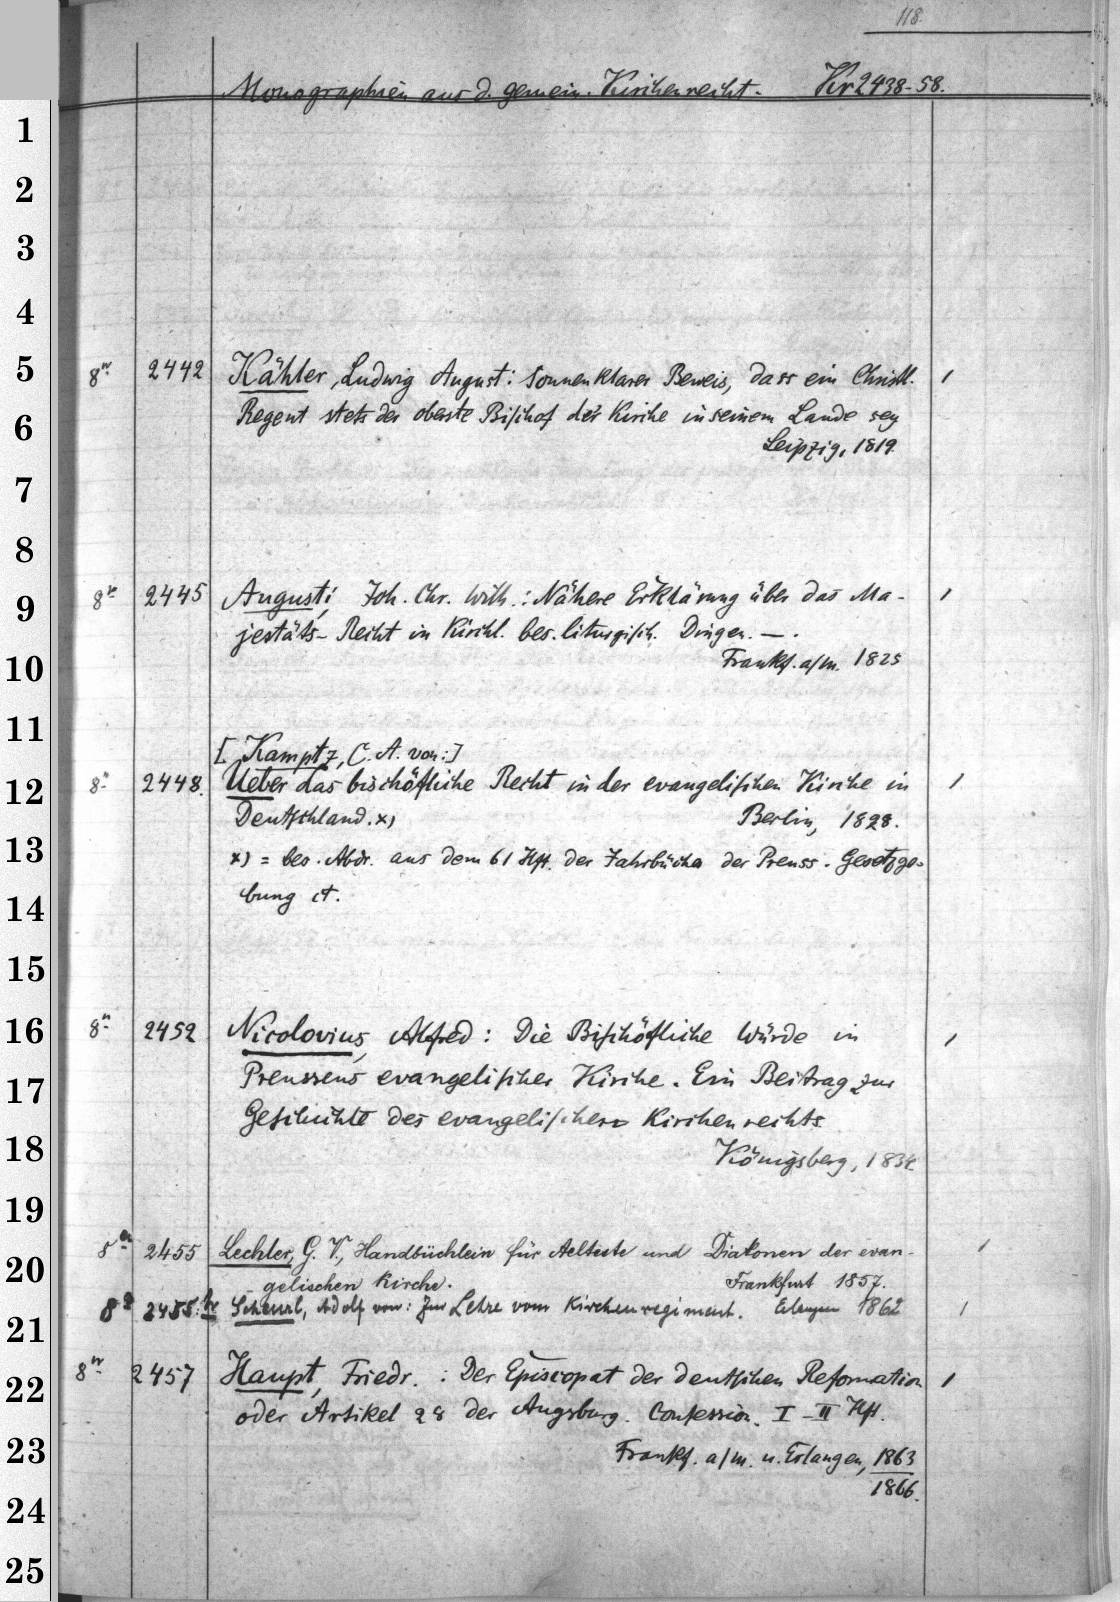 118.
Monographien aus d. gemein. Kirchenrecht. Kr 2438-58.
1
2
3
4
5 8º 2442 Kähler, Ludwig August: Sonnenklarer Beweis, dass ein Christl. 1
6 Regent stets der oberste Bischof der Kirche in seinem Lande sey
Leipzig, 1819.
7
8
9 8º 2445 Augusti, Joh. Chr. Wilh.: Nähere Erklärung über das Ma- 1
jestäts-Recht in Kirchl. bes. liturgisch. Dingen. —.
10 Frankf. a/m. 1825
11
[Kamptz, C. A. von:]
12 8º 2448. Ueber das bischöfliche Recht in der evangelischen Kirche in 1
Deutschland. x) Berlin, 1828.
13 x) = bes. Abdr. aus dem 61 Hft. der Jahrbücher der Preuss. Gesetzge-
14 bung ct.
15
16 8º 2452 Nicolovius, Alfred: Die Bischöfliche Würde in 1
17 Preussens evangelischer Kirche. Ein Beitrag zur
Geschichte des evangelischen Kirchenrechts
18 Königsberg, 1834.
19
8º 2455 Lechler, G. V., Handbüchlein für Aelteste und Diakonen der evan- 1
20 gelischen Kirche. Frankfurt 1857.
8º 2455: Scheurl, Adolf von: Zur Lehre vom Kirchenregiment. Erlangen 1862 1
21
22 8º 2457 Haupt, Friedr.: Der Episcopat der deutschen Reformation 1
oder Artikel 28 der Augsburg. Confession. I-II Hft.
23 Frankf. a/m. u. Erlangen, 1863
24 1866.
25